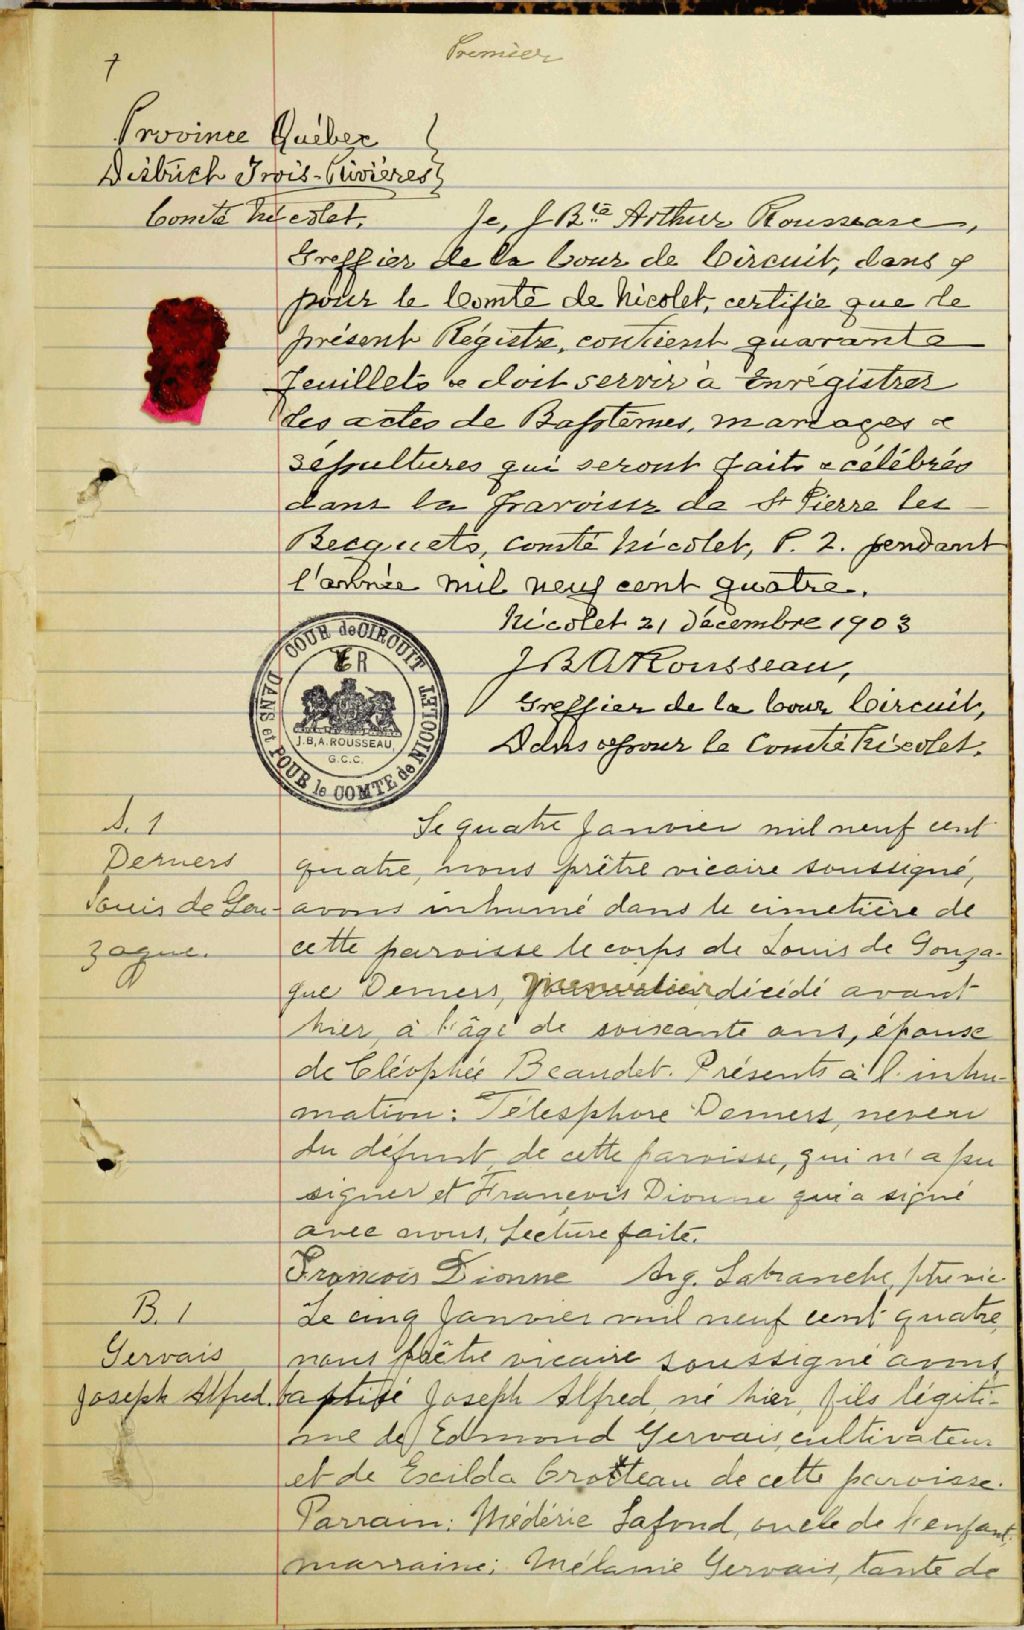 Premier
7
Province Québec
District Trois-Rivières
Comté Nicolet. Je, J Bte Arthur Rousseau,
Greffier de la Cour de Circuit, dans &
pour le Comté de Nicolet, certifie que le
présent Régistre, contient quarante
feuillets & doit servir à Enrégistrer
les actes de Baptêmes, mariages &
sépultures qui seront faits & célébrés
dans la paroisse de St Pierre les
Becquets, comté Nicolet, P. 2. pendant
l'année mil neuf cent quatre.
Nicolet 21 décembre 1903
J B A Rousseau,
Greffier de la Cour Circuit,
Dans & pour le Comté Nicolet.
COUR de CIRCUIT
DANS et POUR le COMTE de NICOLET
E R
J.B.A. ROUSSEAU,
G.C.C.
S. 1
Demers
Louis de Gon-
zague.
Le quatre Janvier mil neuf cent
quatre, nous prêtre vicaire soussigné,
avons inhumé dans le cimetière de
cette paroisse le corps de Louis de Gonza-
gue Demers, décédé avant
hier, à l'âge de soixante ans, époux
de Cléophée Beaudet. Présents à l'inhu-
mation: Télesphore Demers, neveu
du défunt, de cette paroisse, qui n'a pu
signer et François Dionne qui a signé
avec nous. Lecture faite.
Francois Dionne Arg. Labranche, ptre vic.
B. 1
Gervais
Joseph Alfred.
Le cinq Janvier mil neuf cent quatre,
nous prêtre vicaire soussigné avons
baptisé Joseph Alfred, né hier, fils légiti-
me de Edmond Gervais, cultivateur
et de Exilda Crotteau de cette paroisse.
Parrain: Médéric Lafond, oncle de l'enfant,
marraine; Mélanie Gervais, tante de